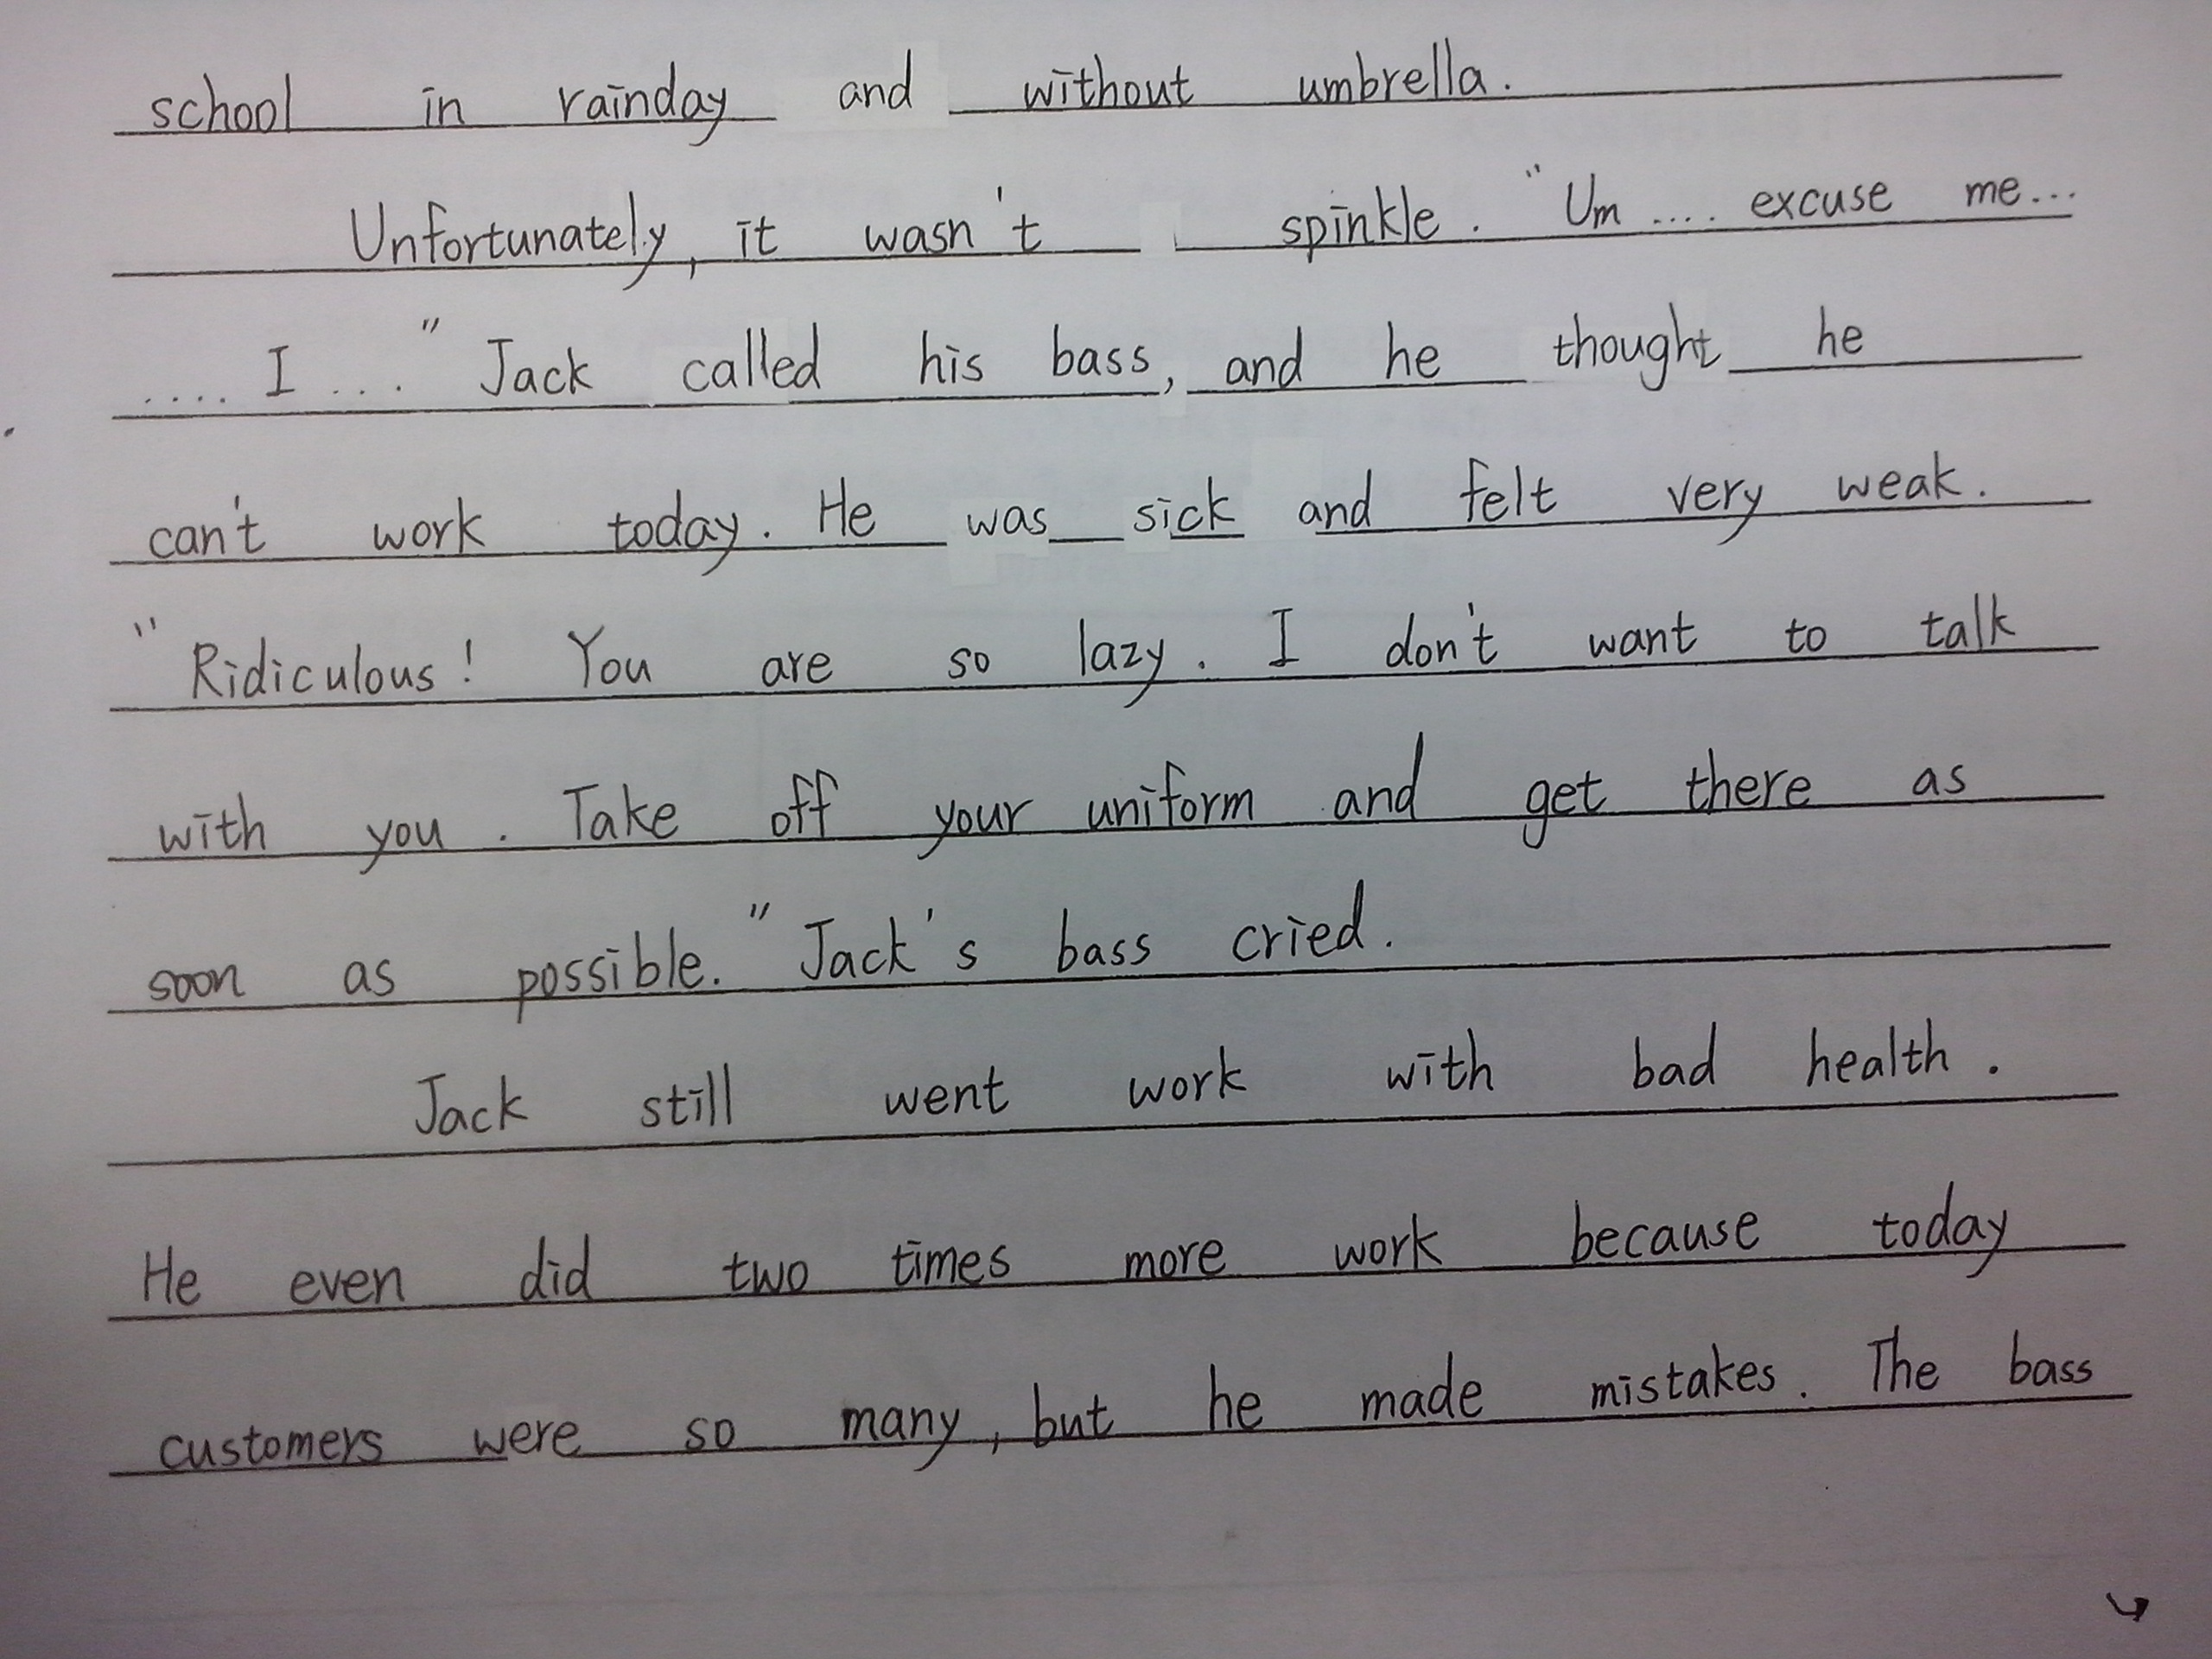 school in rainday and without umbrella.
Unfortunately, it wasn't spinkle. "Um .... excuse me...
.... I ... " Jack called his bass, and he thought he
can't work today. He was sick and felt very weak.
"Ridiculous! You are so lazy. I don't want to talk
with you. Take off your uniform and get there as
soon as possible." Jack's bass cried.
Jack still went work with bad health.
He even did two times more work because today
customers were so many, but he made mistakes. The bass